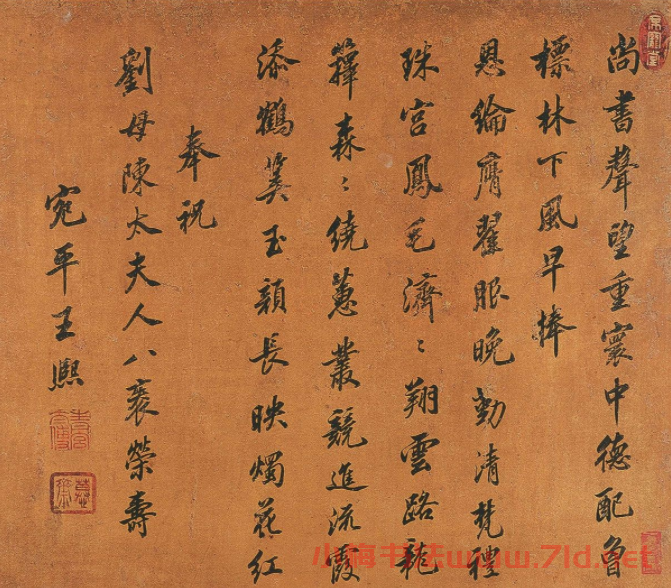 尚書聲望重寰中德配魯
標林下風早捧
恩綸膺翟服晚勤清梵禮
珠宮鳳毛濟〻翔雲路龍
籜森〻繞蕙叢競進流霞
添鶴筭玉顏長映燭花紅
奉祝
劉母陳太夫人八袠榮壽
宛平王熙
小梅书法www.7ld.net